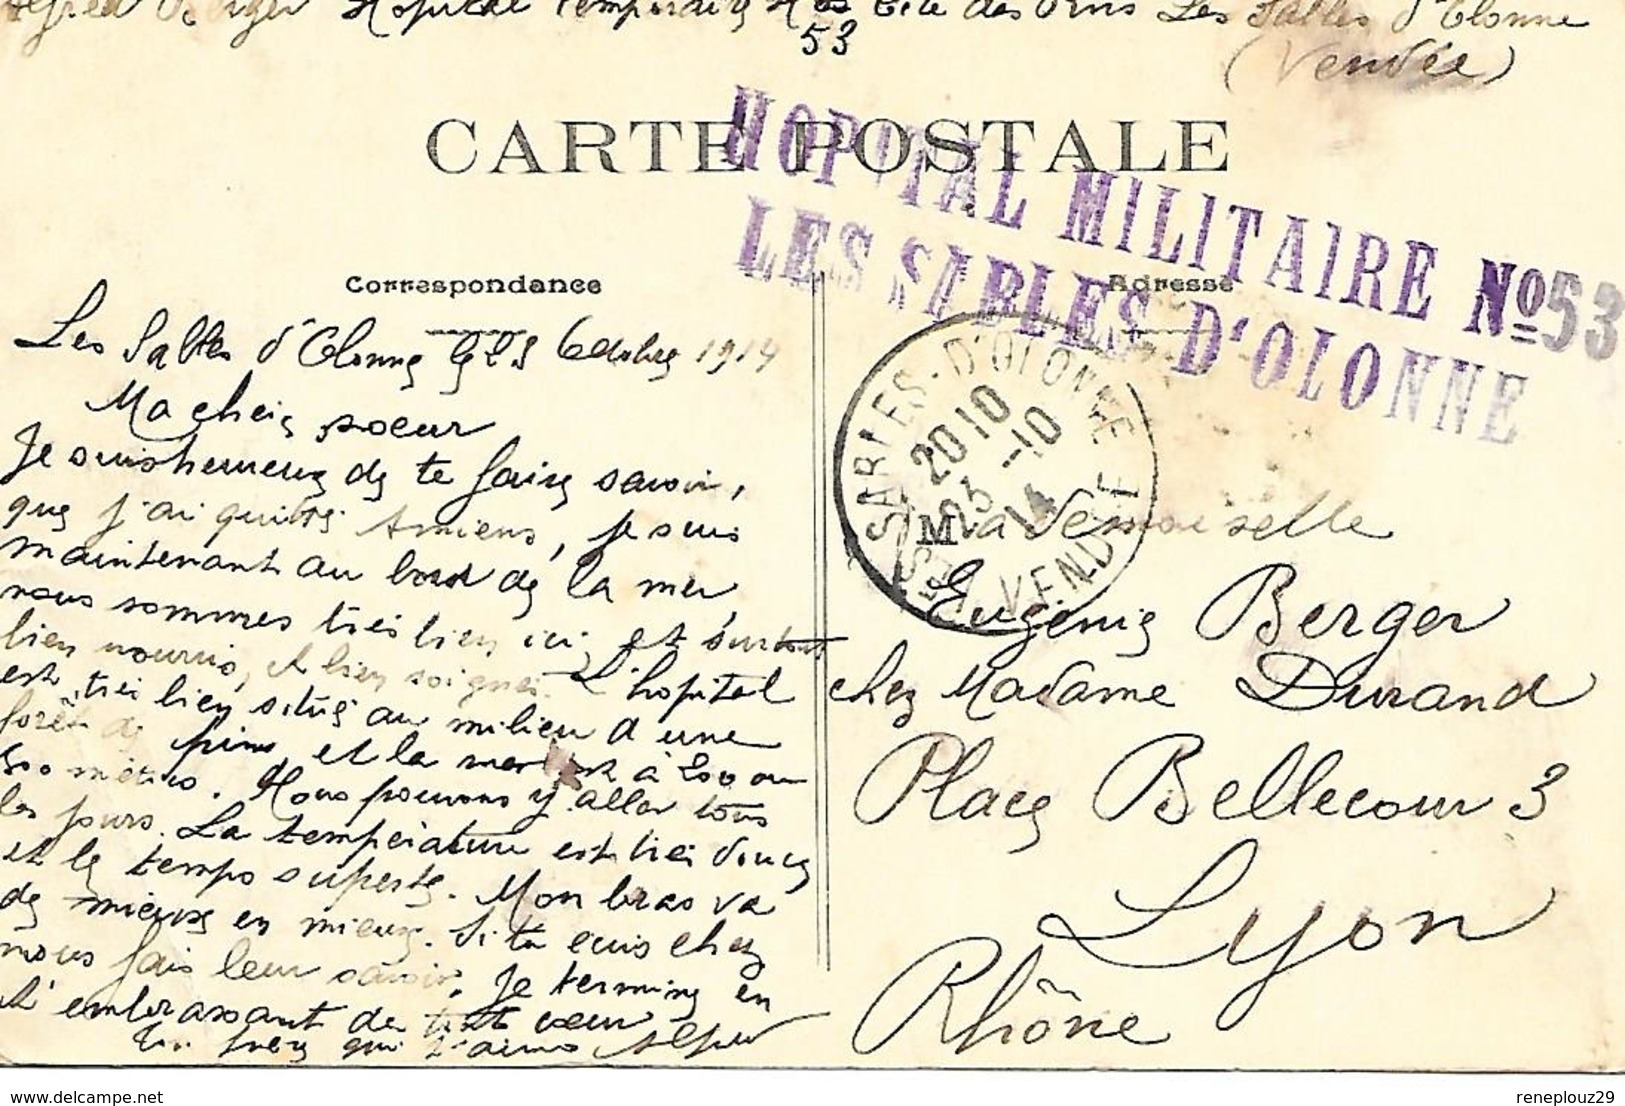 Alfred Berger Hopital Temporaire Nos Cité des Pins Les Sables d'Olonne
53
(Vendée)
CARTE POSTALE
HOPITAL MILITAIRE No 53
LES SABLES D'OLONNE
Correspondance
Les Sables d'Olonne le 23 Octobre 1914
Ma cheire soeur
Je suis heureux de te faire savoir,
que j'ai quittés Amiens, je suis
maintenant au bord de la mer,
nous sommes très bien ici, et surtout
bien nourris, et bien soignés. L'hopital
est très bien situé au milieu d'une
forêt de pins et la mer est à 200 ou
300 mètres. Nous pouvons y aller tous
les jours. La température est très douce
et le temps superbe. Mon bras va
de mieux en mieux. Si tu ecris chez
nous fais leur savoir. Je termine en
t'embrassant de tout coeur
Ton frère qui t'aime Alfred
Adresse
SABLES-D'OLONNE
20 10
23 -10
14
VENDÉE
Mademoiselle
Eugénie Berger
chez Madame Durand
Place Bellecour 3
Lyon
Rhône
reneplouz29